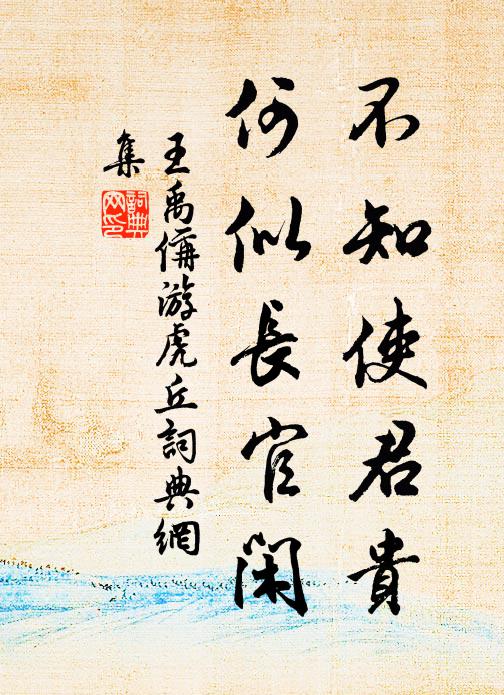 不知使君貴
何似長官閑
王禹偁游虎丘詞典網
集
詞典
网印